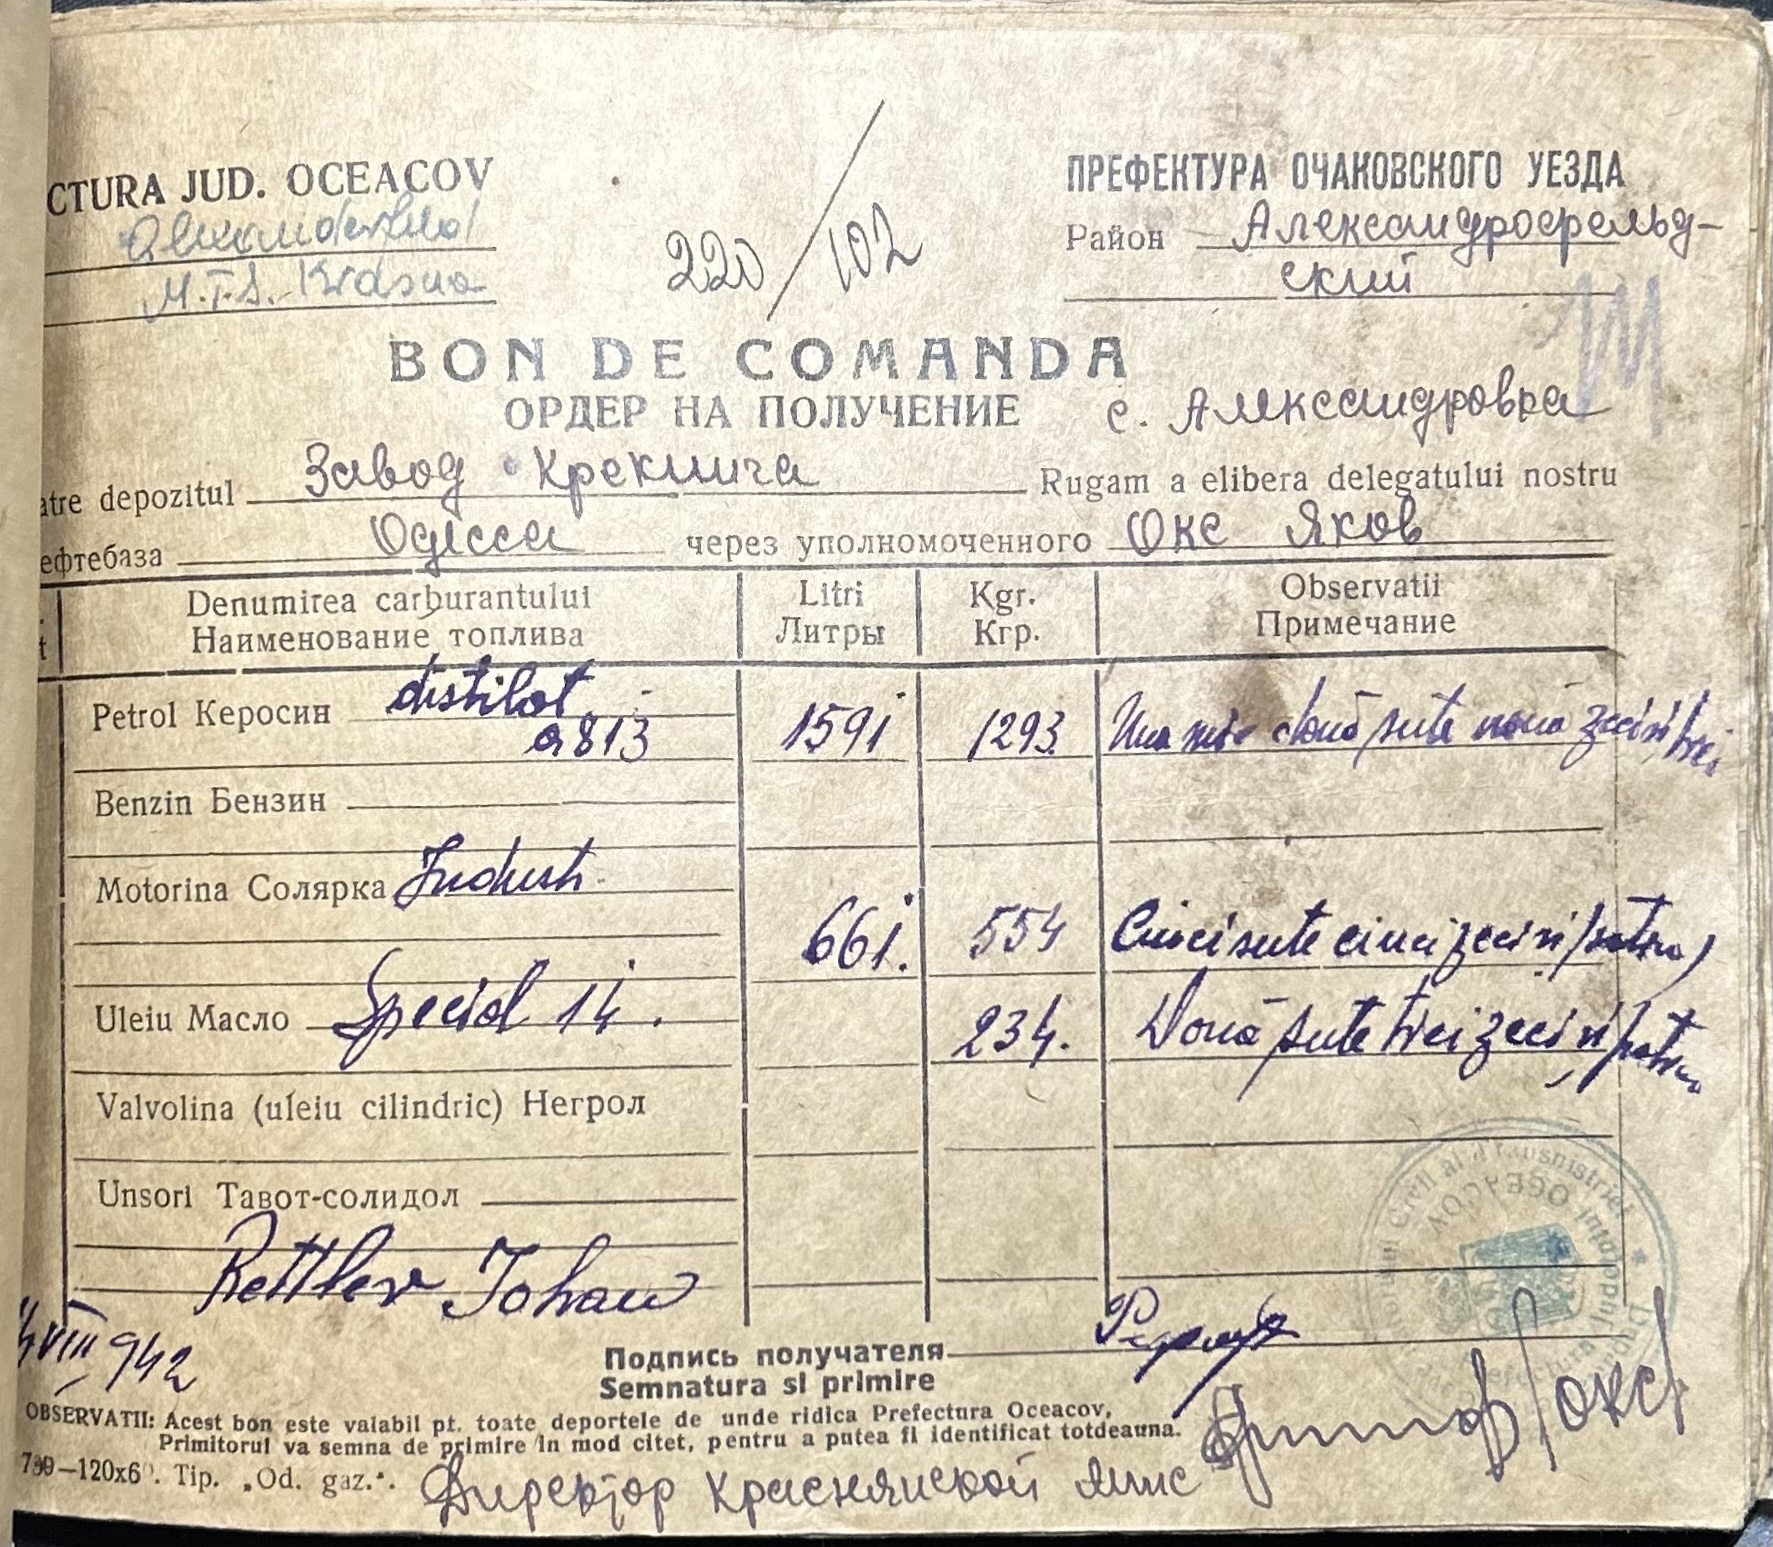 CTURA JUD. OCEACOV
ПРЕФЕКТУРА ОЧАКОВСКОГО УЕЗДА
Район Александрофельд-
ский
M.T.S. Krasna
220/102
BON DE COMANDA
ОРДЕР НА ПОЛУЧЕНИЕ с. Александровка
atre depozitul Завод Крекинга Rugam a elibera delegatului nostru
ефтебаза Одесса через уполномоченного Окс Яков
Denumirea carburantului Litri Kgr. Observatii
Наименование топлива Литры Кгр. Примечание
Petrol Керосин distilat 1591 1293 Una mie două sute nouă zeci și trei
813
Benzin Бензин
Motorina Солярка Industr.
661. 554 Cinci sute cinci zeci și patru
Uleiu Масло Special 14. 234. Două sute trei zeci și patru
Valvolina (uleiu cilindric) Негрол
Unsori Тавот-солидол
Rettler Iohan
VIII 942
Подпись получателя
Semnatura si primire
OBSERVATII: Acest bon este valabil pt. toate deportele de unde ridica Prefectura Oceacov,
Primitorul va semna de primire in mod citet, pentru a putea fi identificat totdeauna.
–120x6 . Tip. „Od. gaz.“.
Директор Краснянской ммс /Окс/